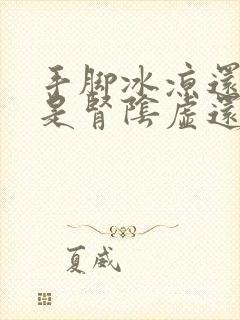 手脚冰凉還
是腎陰虛還
夏威